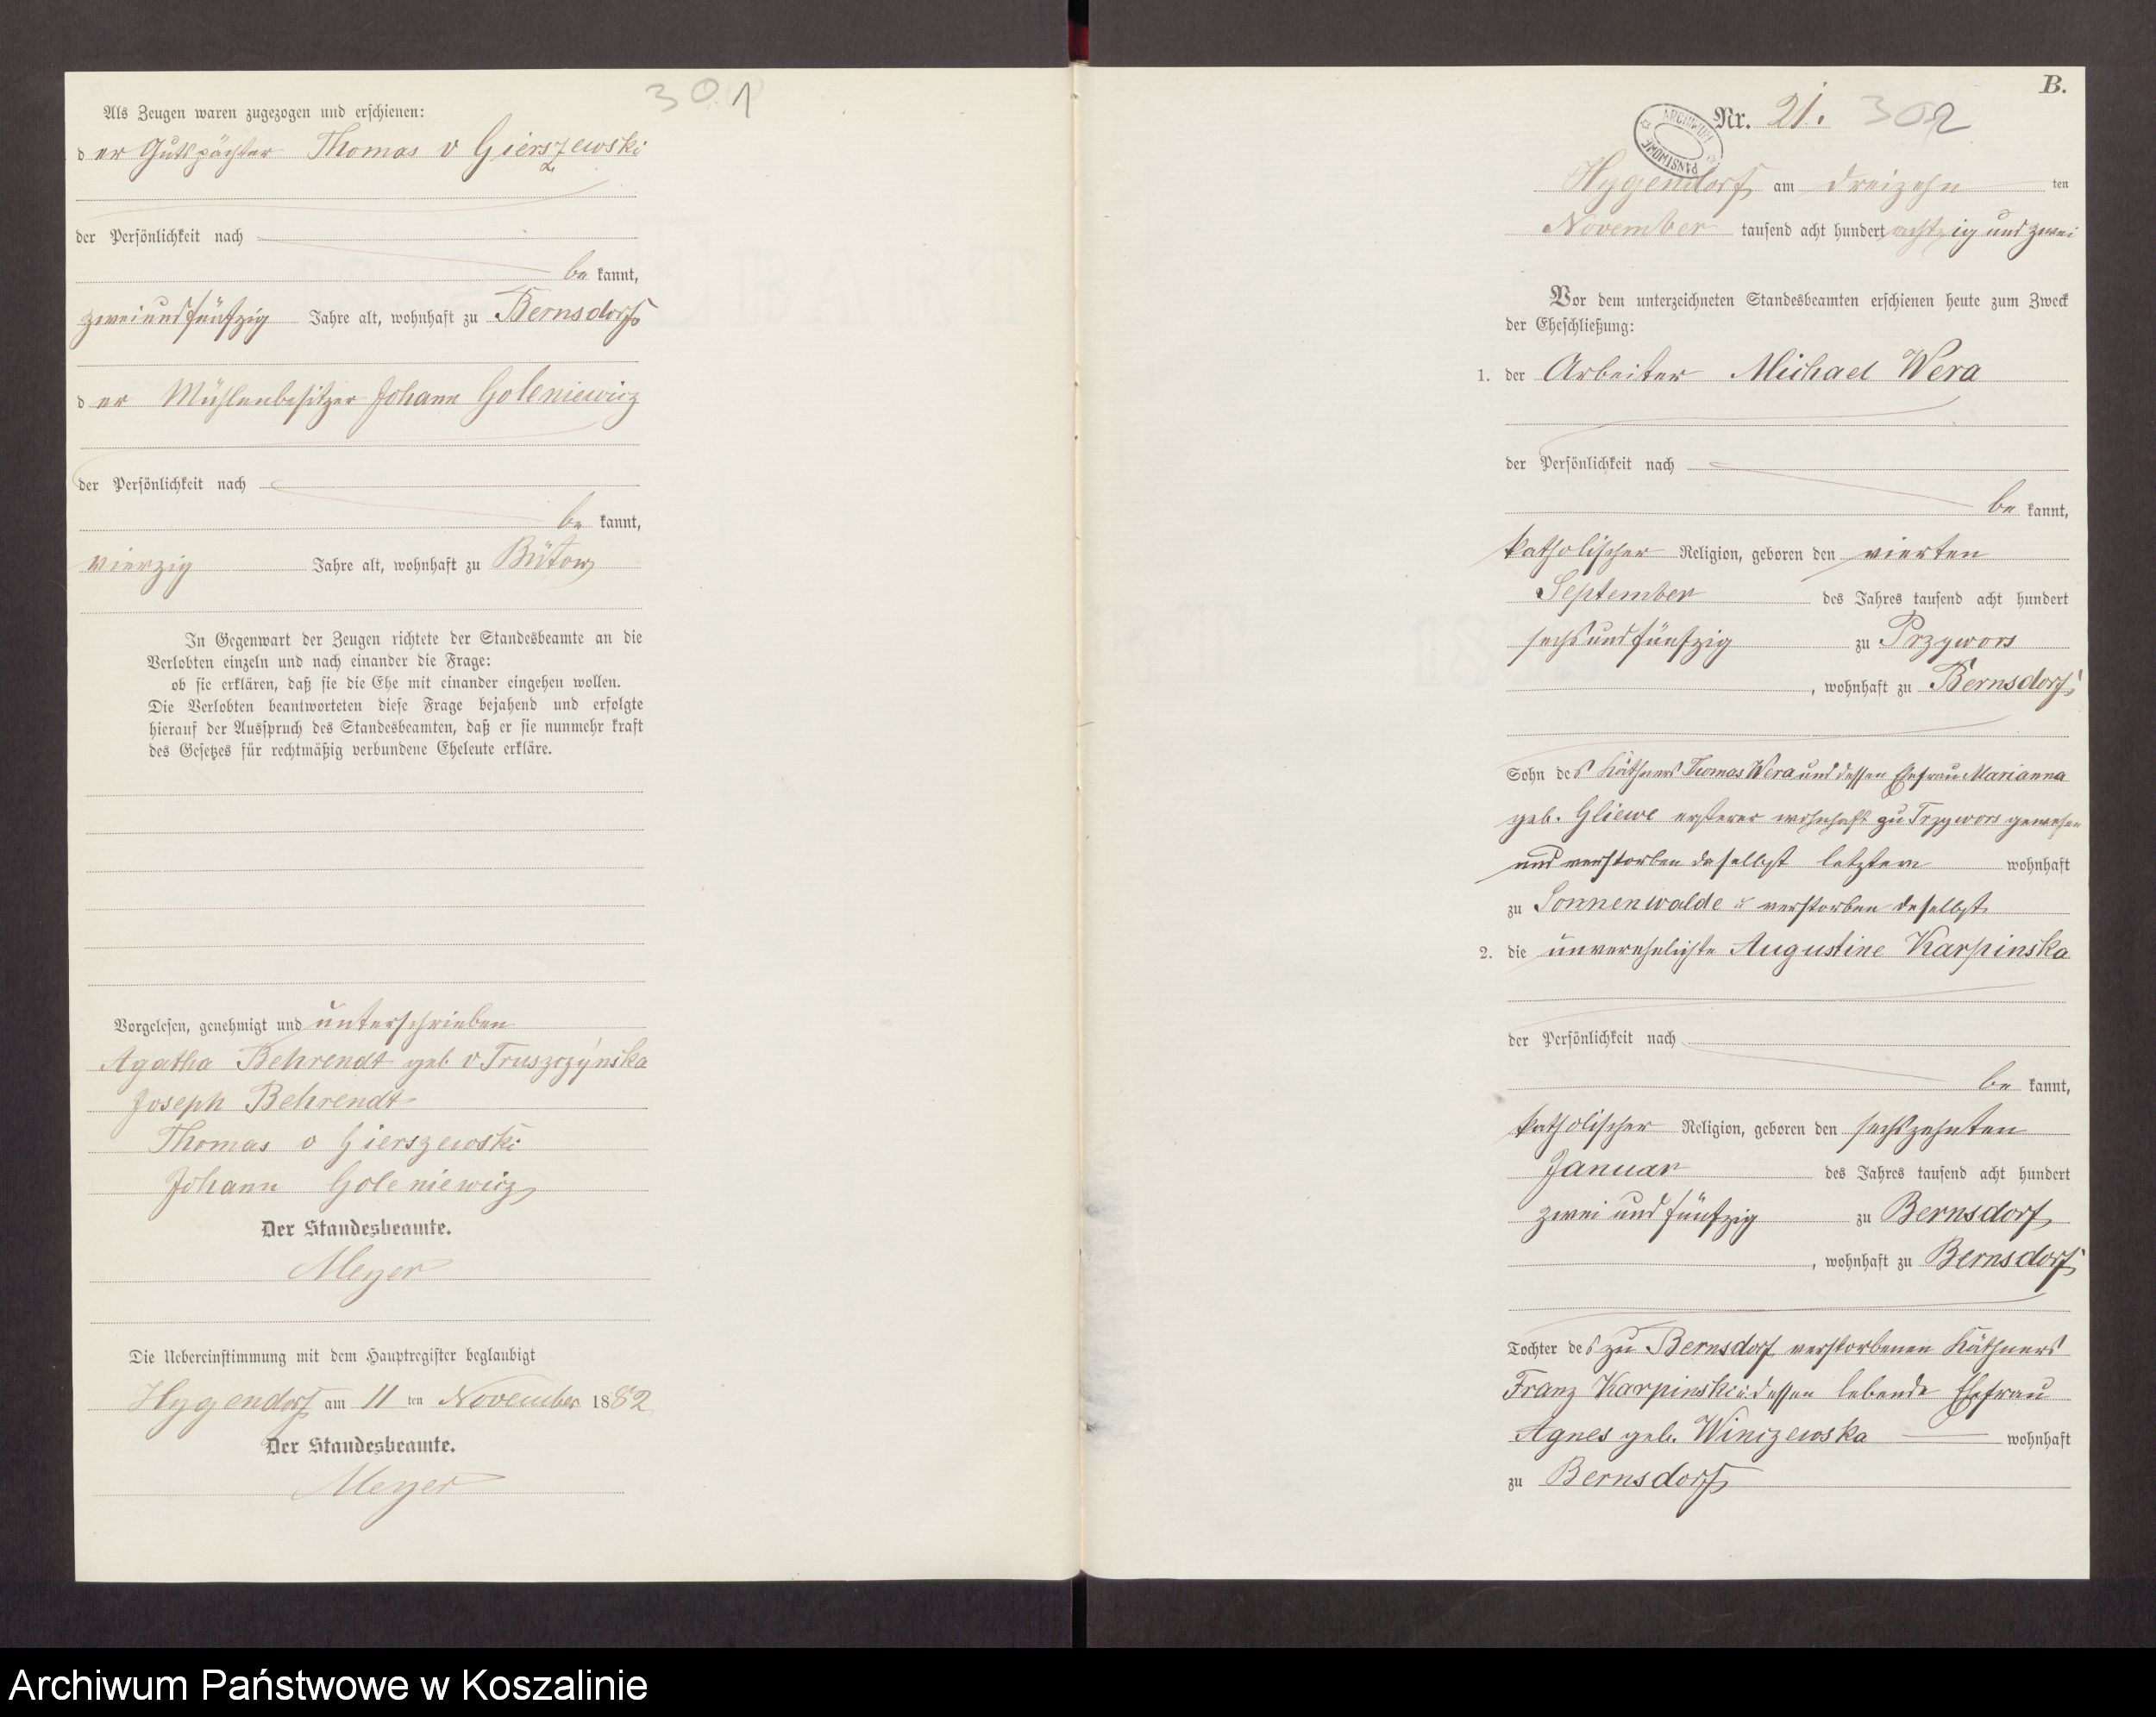 301
Als Zeugen waren zugezogen und erschienen:
der Gutspächter Thomas v Gierszewski
2.
der Persönlichkeit nach
be kannt,
zweiundfünfzig Jahre alt, wohnhaft zu Bernsdorf
der Mühlenbesitzer Johann Goleniewicz
der Persönlichkeit nach
be kannt,
vierzig Jahre alt, wohnhaft zu Bütow
In Gegenwart der Zeugen richtete der Standesbeamte an die
Verlobten einzeln und nach einander die Frage:
ob sie erklären, daß sie die Ehe mit einander eingehen wollen.
Die Verlobten beantworteten diese Frage bejahend und erfolgte
hierauf der Ausspruch des Standesbeamten, daß er sie nunmehr kraft
des Gesetzes für rechtmäßig verbundene Eheleute erkläre.
Vorgelesen, genehmigt und unterschrieben
Agatha Behrendt geb. v Truszczýnska
Joseph Behrendt
Thomas v Gierszewski
Johann Goleniewicz
Der Standesbeamte.
Meyer
Die Uebereinstimmung mit dem Hauptregister beglaubigt
Hygendorf am 11 ten November 1882
Der Standesbeamte.
Meyer
B.
Nr. 21. 302
ARCHIWUM PAŃSTWOWE
Hygendorf am dreizehn ten
November tausend acht hundert achtzig und zwei
Vor dem unterzeichneten Standesbeamten erschienen heute zum Zweck
der Eheschließung:
1. der Arbeiter Michael Wera
der Persönlichkeit nach
be kannt,
katholischer Religion, geboren den vierten
September des Jahres tausend acht hundert
sechsundfünfzig zu Przywors
, wohnhaft zu Bernsdorf
Sohn des Käthners Thomas Wera und dessen Ehefrau Marianna
geb. Gliewe ersterer wohnhaft zu Przywors gewesen
und verstorben daselbst letztere wohnhaft
zu Sonnenwalde u verstorben daselbst
2. die unverehelichte Augustine Karpinska
der Persönlichkeit nach
be kannt,
katholischer Religion, geboren den sechszehnten
Januar des Jahres tausend acht hundert
zwei und fünfzig zu Bernsdorf
, wohnhaft zu Bernsdorf
Tochter des zu Bernsdorf verstorbenen Käthners
Franz Karpinski u. dessen lebende Ehefrau
Agnes geb. Winczewska wohnhaft
zu Bernsdorf
Archiwum Państwowe w Koszalinie